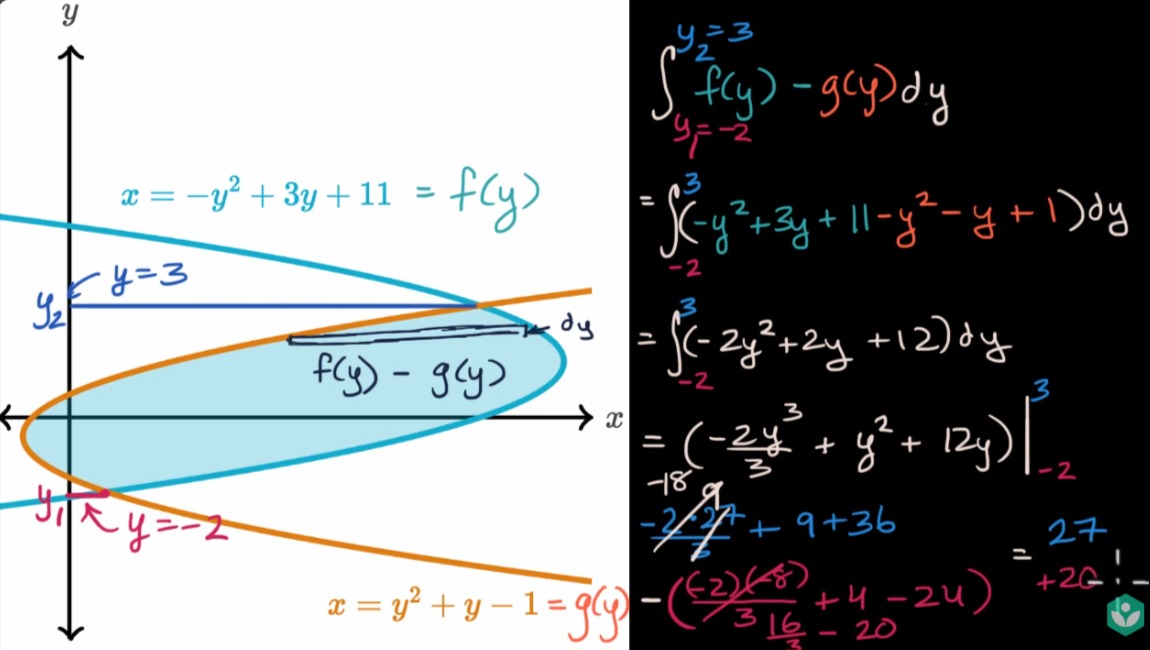 y
x = −y² + 3y + 11 = f(y)
y = 3
y₂
dy
f(y) − g(y)
x
y₁
y = −2
x = y² + y − 1 = g(y)
∫ y₂ = 3 y₁ = −2 f(y) − g(y) dy
= ∫ 3 −2 (−y² + 3y + 11 − y² − y + 1) dy
= ∫ 3 −2 (−2y² + 2y + 12) dy
= (−2y³/3 + y² + 12y) | 3 −2
−18 9
−2·27/3 + 9 + 36
− ((−2)(−8)/3 + 4 − 24)
16/3 − 20
= 27
+20